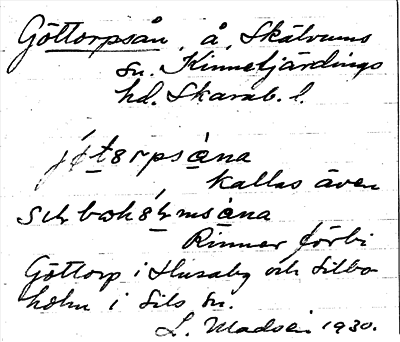 Göttorpsån, å, Skälvums
sn. Kinnefjärdings
hd. Skarab. l.
kallas även
Rinner förbi
Göttorp i Husaby och Silbo-
holm i Sils sn.
L. Madsén 1930.